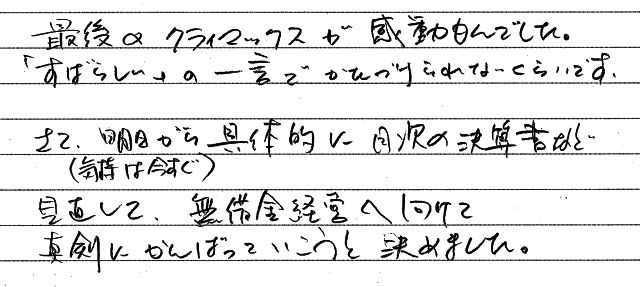 最後のクライマックスが感動的でした。
「すばらしい」の一言でかたづけられないくらいです。
さて、明日から具体的に月次の決算書など
(気持は今すぐ)
見直して、無借金経営へ向けて
真剣にがんばっていこうと決めました。